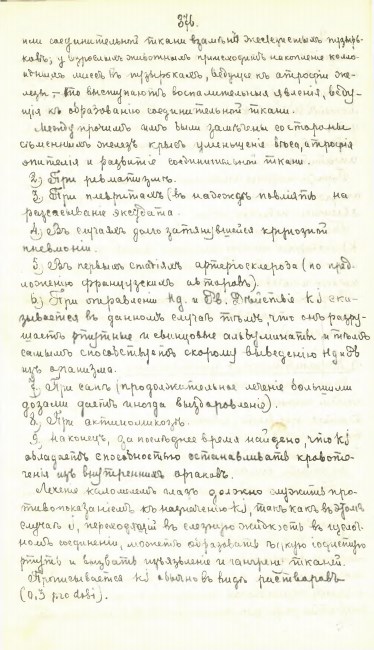 376.
нии соединительной ткани взамѣнъ железистыхъ пузырь-
ковъ; у взрослыхъ животныхъ происходитъ накопленіе колло-
идныхъ массъ въ пузырькахъ, ведущее къ атрофіи же-
лезы, то выступаютъ воспалительныя явленія, веду-
щія къ образованію соединительной ткани.
Между прочимъ были замѣчены со стороны
сѣменныхъ железъ крысъ уменьшеніе вѣса, атрофія
эпителія и развитіе соединительной ткани.
2) При ревматизмѣ.
3) При плевритахъ (въ надеждѣ повліять на
разсасываніе эксудата
4) Въ случаяхъ долго затянувшейся крупозной
пневмоніи.
5) Въ первыхъ стадіяхъ артеріосклероза (по пред-
ложенію французскихъ авторовъ).
6) При отравленіи Hg. и Pb. Дѣйствіе KJ ска-
зывается въ данномъ случаѣ тѣмъ, что онъ разру-
шаетъ ртутные и свинцовые альбуминаты и тѣмъ
самымъ способствуетъ скорому выведенію Hg и Pb
изъ организма.
7) При сапѣ (продолжительное леченіе большими
дозами даетъ иногда выздоровленіе).
8) При актиномикозѣ.
9) Наконецъ, за последнее время найдено, что KJ
обладаетъ способностью останавливать кровоте-
ченія изъ внутреннихъ органовъ.
Леченіе каломелемъ глазъ должно служить про-
тивопоказаніемъ къ назначенію KJ, такъ какъ въ этомъ
случаѣ J, переходящій въ слезную жидкость въ
соединеніи, можетъ образовать іодистую
ртуть и вызвать изъязвленіе и гангрену тканей.
Прописывается KJ обычно въ видѣ растворовъ
(0,3 pro dosi).